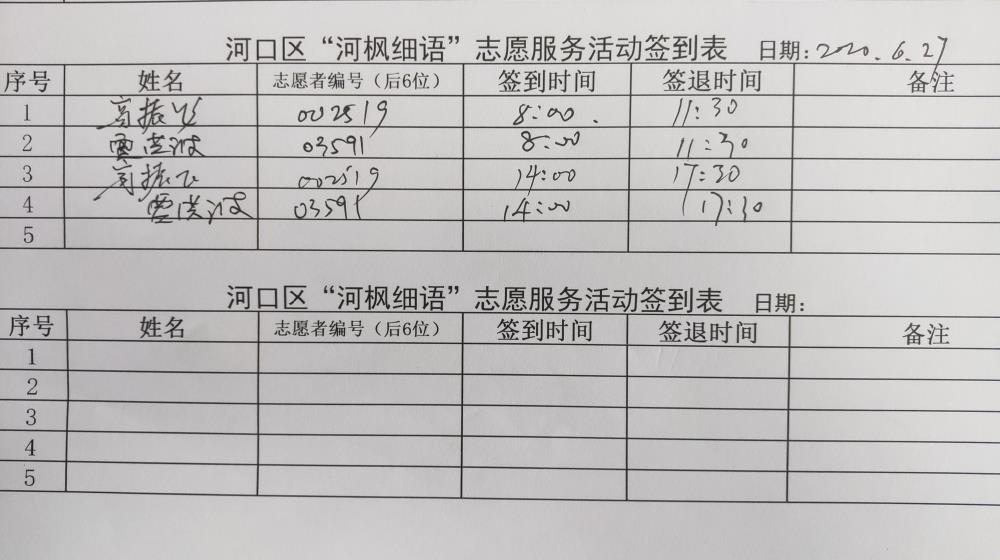 河口区“河枫细语”志愿服务活动签到表 日期：2020.6.27
序号 姓名 志愿者编号（后6位） 签到时间 签退时间 备注
1 高振飞 002519 8:00. 11:30
2 03591 8:00 11:30
3 高振飞 002519 14:00 17:30
4 03591 14:00 17:30
5
河口区“河枫细语”志愿服务活动签到表 日期：
序号 姓名 志愿者编号（后6位） 签到时间 签退时间 备注
1
2
3
4
5